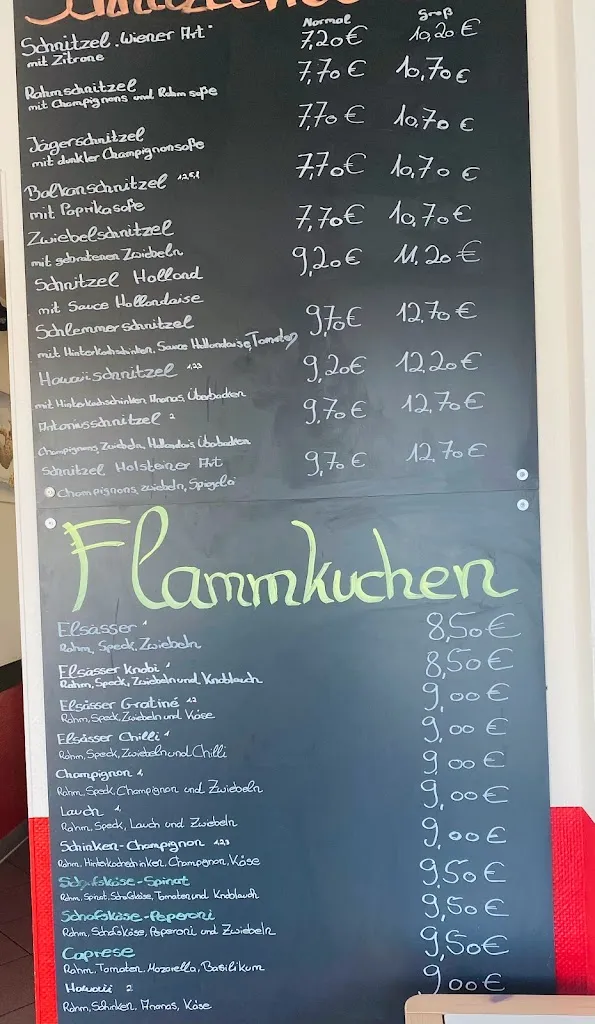 Normal Groß
Schnitzel „Wiener Art" 7,20€ 10,20€
mit Zitrone
Rahmschnitzel 7,70€ 10,70€
mit Champignons und Rahmsoße
Jägerschnitzel 7,70€ 10,70€
mit dunkler Champignonsoße
Balkanschnitzel 1,2,5,1 7,70€ 10,70€
mit Paprikasoße
Zwiebelschnitzel 7,70€ 10,70€
mit gebratenen Zwiebeln
Schnitzel Holland 9,20€ 11,20€
mit Sauce Hollandaise
Schlemmerschnitzel 9,70€ 12,70€
mit Hinterkochschinken, Sauce Hollandaise, Tomaten
Hawaiischnitzel 1,2,3 9,20€ 12,20€
mit Hinterkochschinken, Ananas, Überbacken
Antoniusschnitzel 2 9,70€ 12,70€
Champignons, Zwiebeln, Hollandais, Überbacken
Schnitzel Holsteiner Art 9,70€ 12,70€
Champignons, Zwiebeln, Spiegelei
Flammkuchen
Elsässer 1 8,50€
Rahm, Speck, Zwiebeln
Elsässer Knobi 1 8,50€
Rahm, Speck, Zwiebeln und Knoblauch
Elsässer Gratiné 1,2 9,00€
Rahm, Speck, Zwiebeln und Käse
Elsässer Chilli 1 9,00€
Rahm, Speck, Zwiebeln und Chilli
Champignon 1 9,00€
Rahm, Speck, Champignon und Zwiebeln
Lauch 1 9,00€
Rahm, Speck, Lauch und Zwiebeln
Schinken-Champignon 1,2,3 9,00€
Rahm, Hinterkochschinken, Champignon, Käse
Schafskäse-Spinat 9,50€
Rahm, Spinat, Schafskäse, Tomaten und Knoblauch
Schafskäse-Peperoni 9,50€
Rahm, Schafskäse, Peperoni und Zwiebeln
Caprese 9,50€
Rahm, Tomaten, Mozarella, Basilikum
Hawaii 2 9,00€
Rahm, Schinken, Ananas, Käse